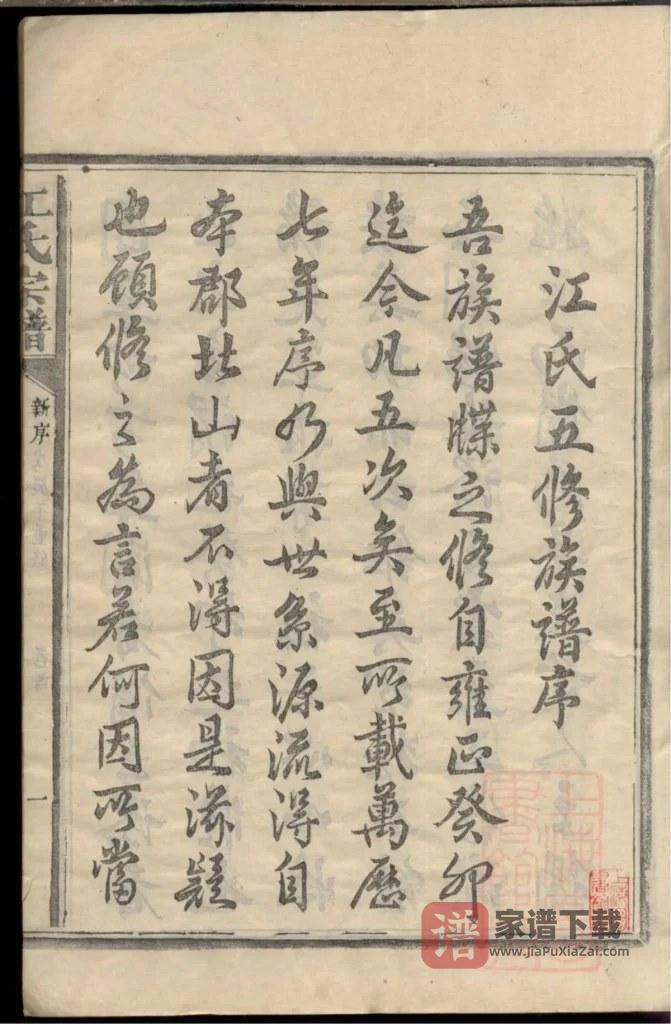 江氏五修族譜序
吾族譜牒之修自雍正癸卯
迄今凡五次矣至所載萬歷
七年序乃與世系源流得自
本郡北山者不得因是滋疑
也顧修之為言若何因所當
江氏宗譜
新序
一
谱 家谱下载
www.JiaPuXiaZai.com